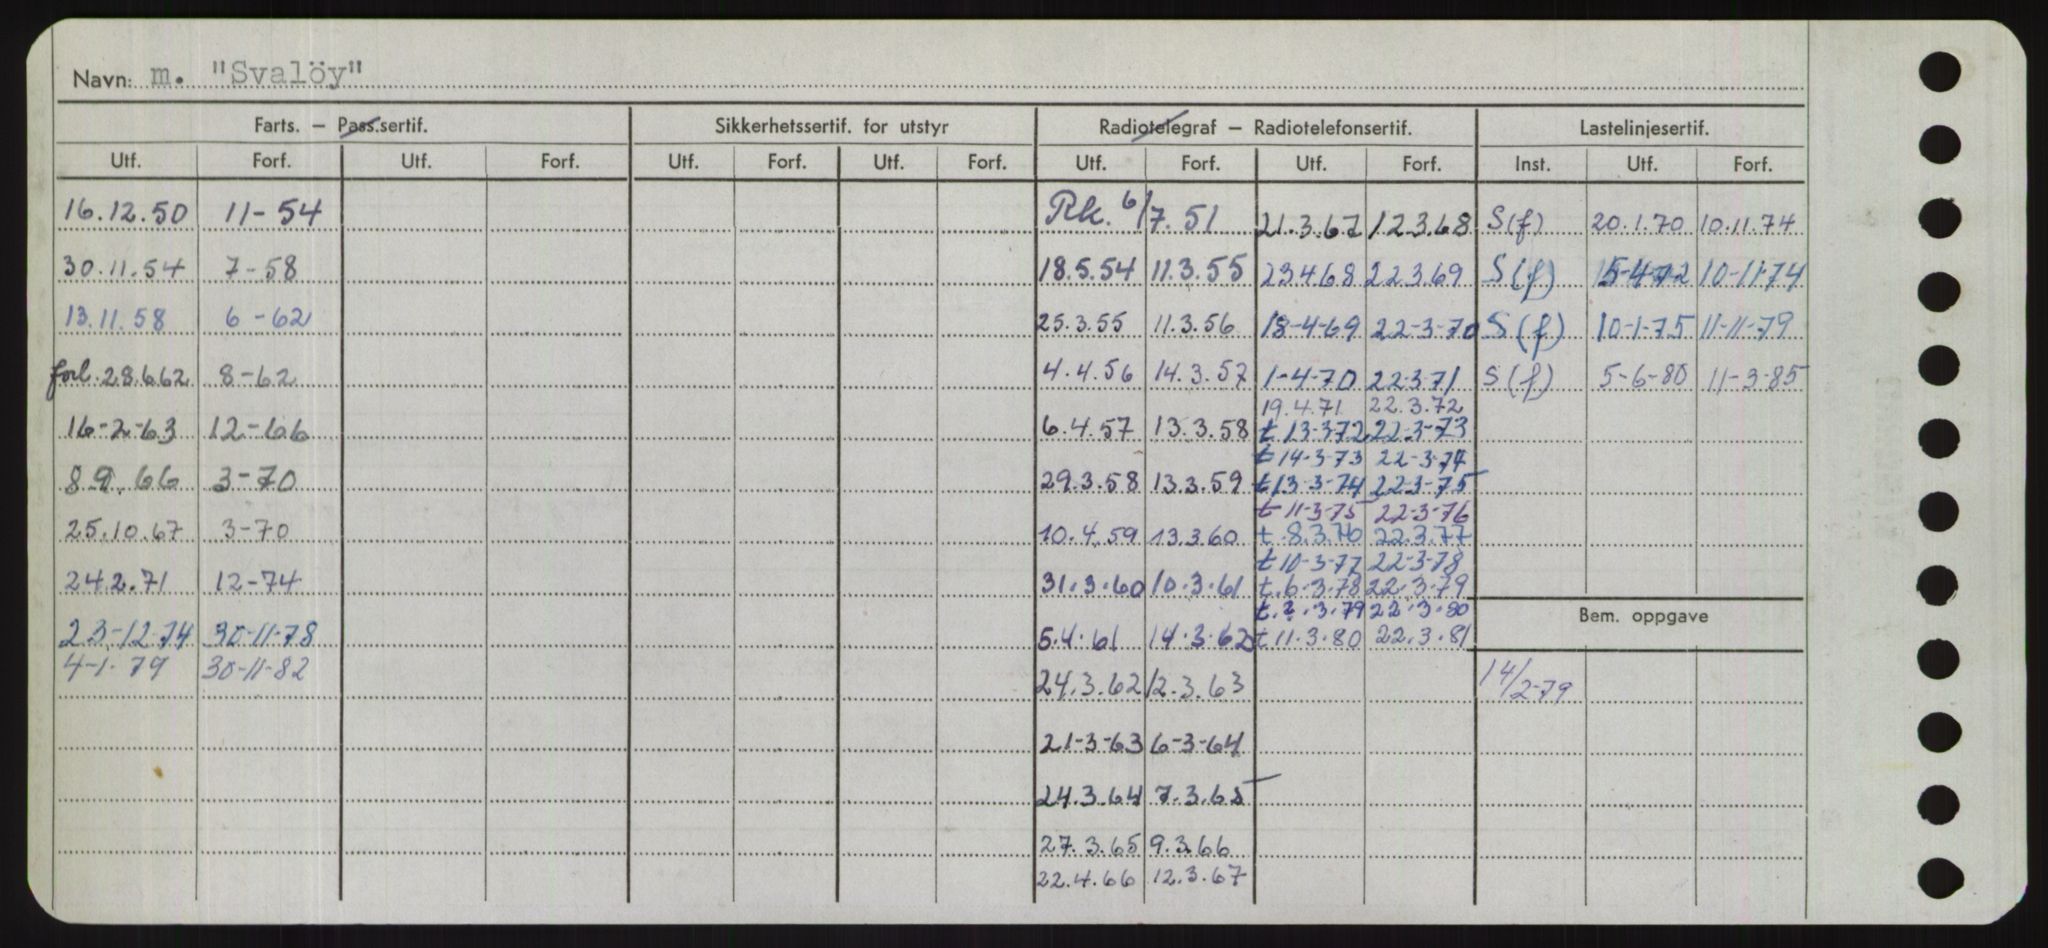 Navn: m. "Svalöy"
Farts. – Pass.sertif. Sikkerhetssertif. for utstyr Radiotelegraf – Radiotelefonsertif. Lastelinjesertif.
Utf. Forf. Utf. Forf. Utf. Forf. Utf. Forf. Utf. Forf. Utf. Forf. Inst. Utf. Forf.
16.12.50 11-54 Rk. 6/7.51 21.3.67 12.3.68 S(f) 20.1.70 10.11.74
30.11.54 7-58 18.5.54 11.3.55 23.4.68 22.3.69 S(f) 5-4-72 10-11-74
13.11.58 6-62 25.3.55 11.3.56 18-4-69 22-3-70 S(f) 10-1-75 11-11-79
forl. 28.6.62 8-62 4.4.56 14.3.57 1-4-70 22.3.71 S(f) 5-6-80 11-3-85
19.4.71 22.3.72
16-2-63 12-66 6.4.57 13.3.58 t.13-3-72 22-3-73
t 14-3-73 22-3-74
8.9.66 3-70 29.3.58 13.3.59 t 13-3-74 22-3-75
t 11-3-75 22-3-76
25.10.67 3-70 10.4.59 13.3.60 t.8.3.76 22.3.77
t 10-3-77 22-3-78
24.2.71 12-74 31.3.60 10.3.61 t.6.3.78 22.3.79
t.2.3.79 22.3.80
Bem. oppgave
23-12-74 30-11-78 5.4.61 14.3.62 t 11.3.80 22.3.81
4-1-79 30-11-82 24.3.62 12.3.63 14/2-79
21-3-63 6-3-64
24.3.64 7.3.65
27.3.65 9.3.66
22.4.66 12.3.67